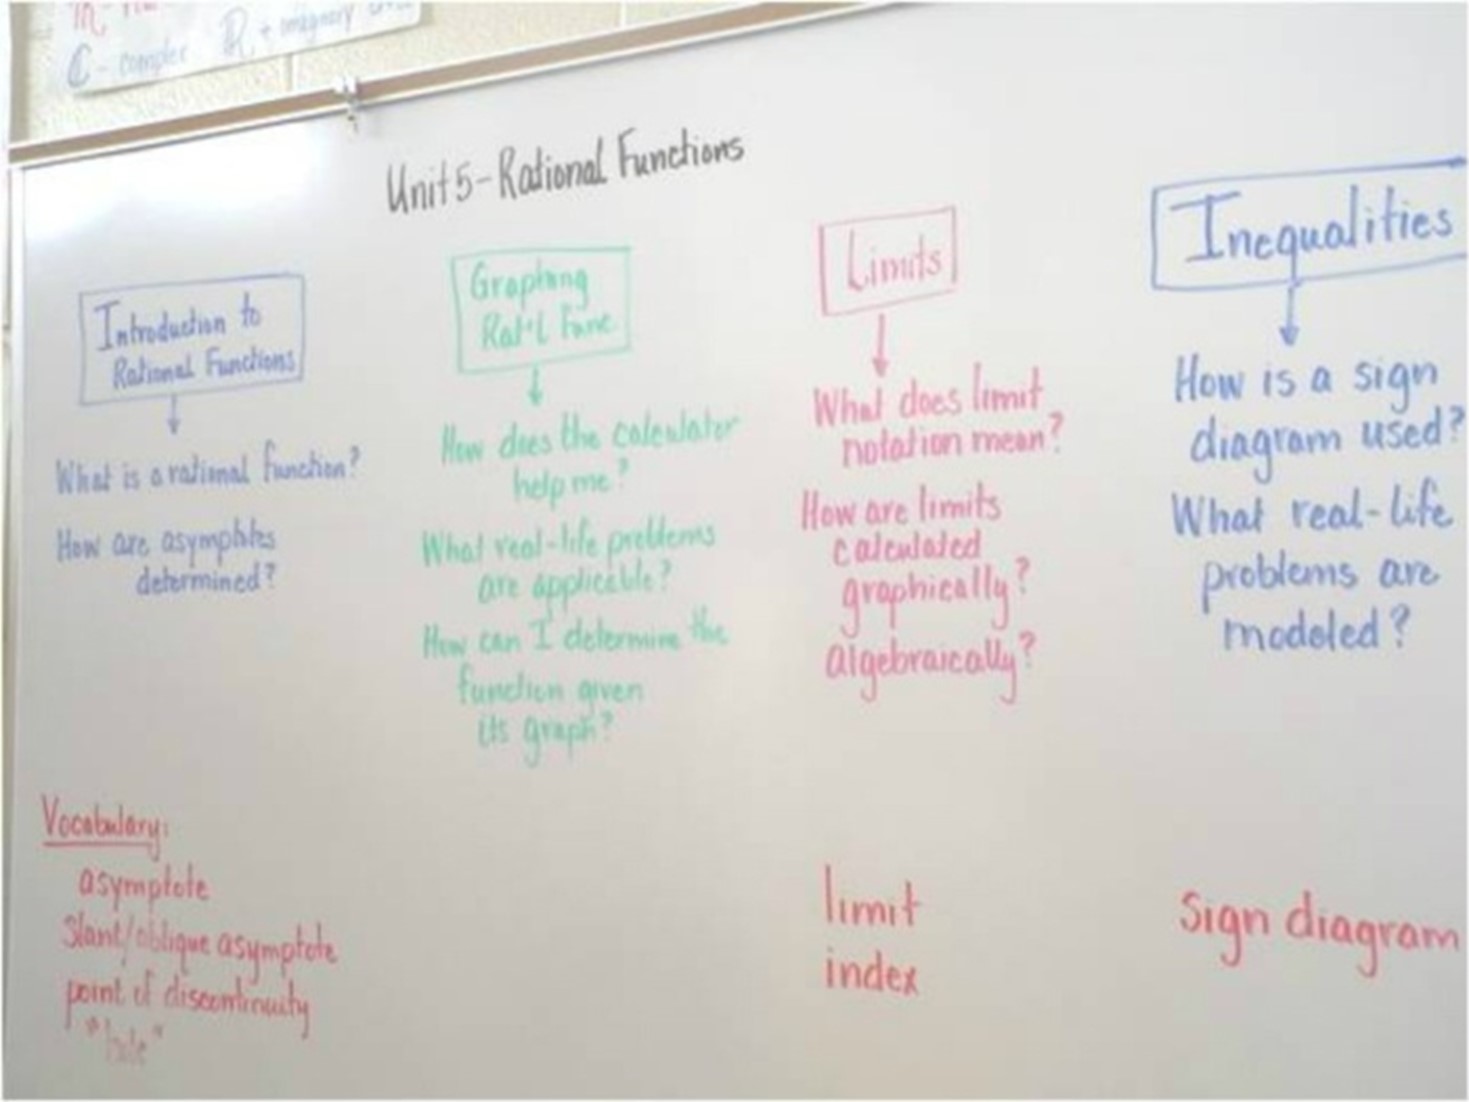 C - complex R + imagnary
Unit 5 - Rational Functions
Introduction to
Rational Functions
What is a rational function?
How are asymptotes
determined?
Graphing
Rat'l Func.
How does the calculator
help me?
What real-life problems
are applicable?
How can I determine the
function given
its graph?
Limits
What does limit
notation mean?
How are limits
calculated
graphically?
algebraically?
Inequalities
How is a sign
diagram used?
What real-life
problems are
modeled?
Vocabulary:
asymptote
Slant/oblique asymptote
point of discontinuity
"hole"
limit
index
Sign diagram